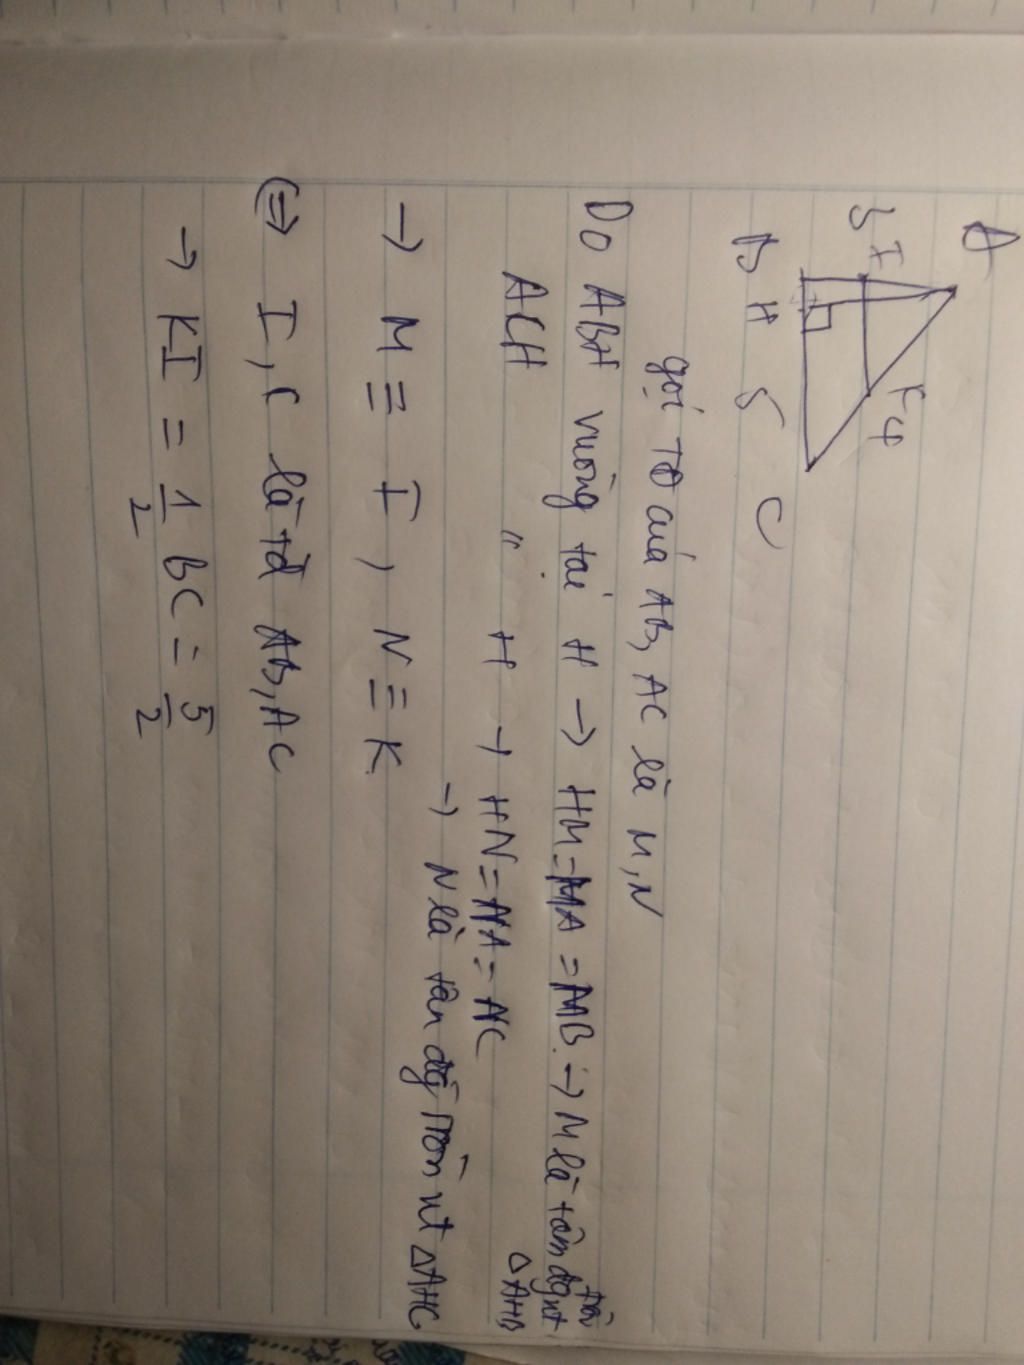 A
3 I K 4
B H 5 C
gọi TĐ của AB, AC là M, N
Do ABH vuông tại H → HM = MA = MB → M là tâm đg tròn nt △AHB
ACH " H → HN = NA = NC
→ N là tâm đg tròn nt △AHC
→ M ≡ I, N ≡ K
(⇒) I, C là tđ AB, AC
→ KI = 1/2 BC = 5/2